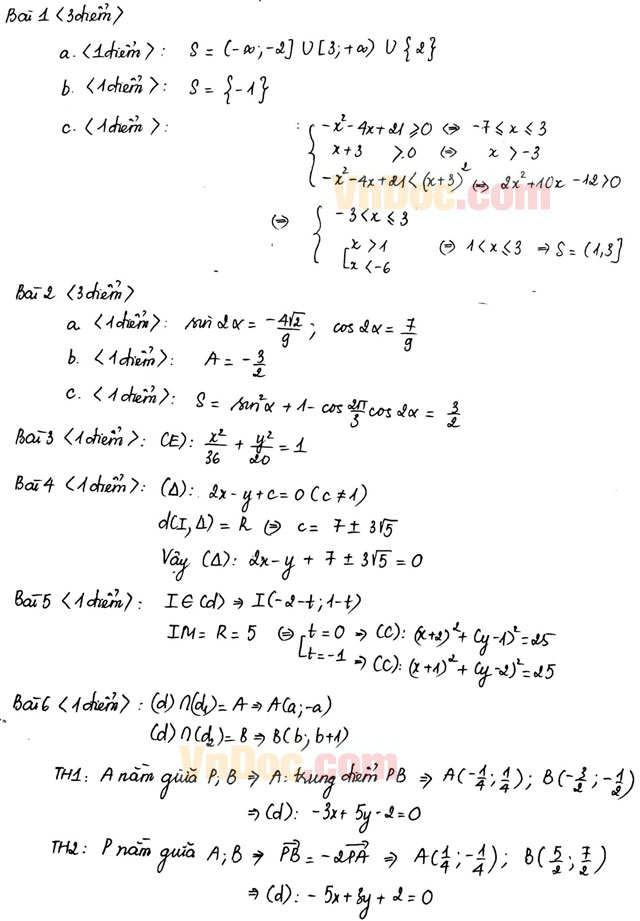 Bài 1 <3điểm>
a. <1điểm>: S = (-∞;-2] ∪ [3;+∞) ∪ {2}
b. <1điểm>: S = {-1}
c. <1điểm>: : { -x²-4x+21 ≥ 0 ⇔ -7 ≤ x ≤ 3
x+3 ≥ 0 ⇔ x > -3
-x²-4x+21 < (x+3)² ⇔ 2x²+10x-12 > 0
⇔ { -3 < x ≤ 3
[ x > 1 ⇔ 1 < x ≤ 3 ⇒ S = (1,3]
x < -6
Bài 2 <3điểm>
a. <1điểm>: sin 2α = -4√2/9 ; cos 2α = 7/9
b. <1điểm>: A = -3/2
c. <1điểm>: S = sin²α + 1 - cos 2π/3 cos 2α = 3/2
Bài 3 <1điểm>: (E): x²/36 + y²/20 = 1
Bài 4 <1điểm>: (Δ): 2x - y + c = 0 (c ≠ 1)
d(I,Δ) = R ⇔ c = 7 ± 3√5
Vậy (Δ): 2x - y + 7 ± 3√5 = 0
Bài 5 <1điểm>: I ∈ (d) ⇒ I(-2-t; 1-t)
IM = R = 5 ⇔ [ t = 0 ⇒ (C): (x+2)² + (y-1)² = 25
t = -1 ⇒ (C): (x+1)² + (y-2)² = 25
Bài 6 <1điểm>: (d) ∩ (d₁) = A ⇒ A(a;-a)
(d) ∩ (d₂) = B ⇒ B(b; b+1)
TH1: A nằm giữa P; B ⇒ A: trung điểm PB ⇒ A(-1/4; 1/4); B(-3/2; -1/2)
⇒ (d): -3x + 5y - 2 = 0
TH2: P nằm giữa A; B ⇒ PB = -2PA ⇒ A(1/4; -1/4); B(5/2; 7/2)
⇒ (d): -5x + 3y + 2 = 0
VnDoc.com
VnDoc.com